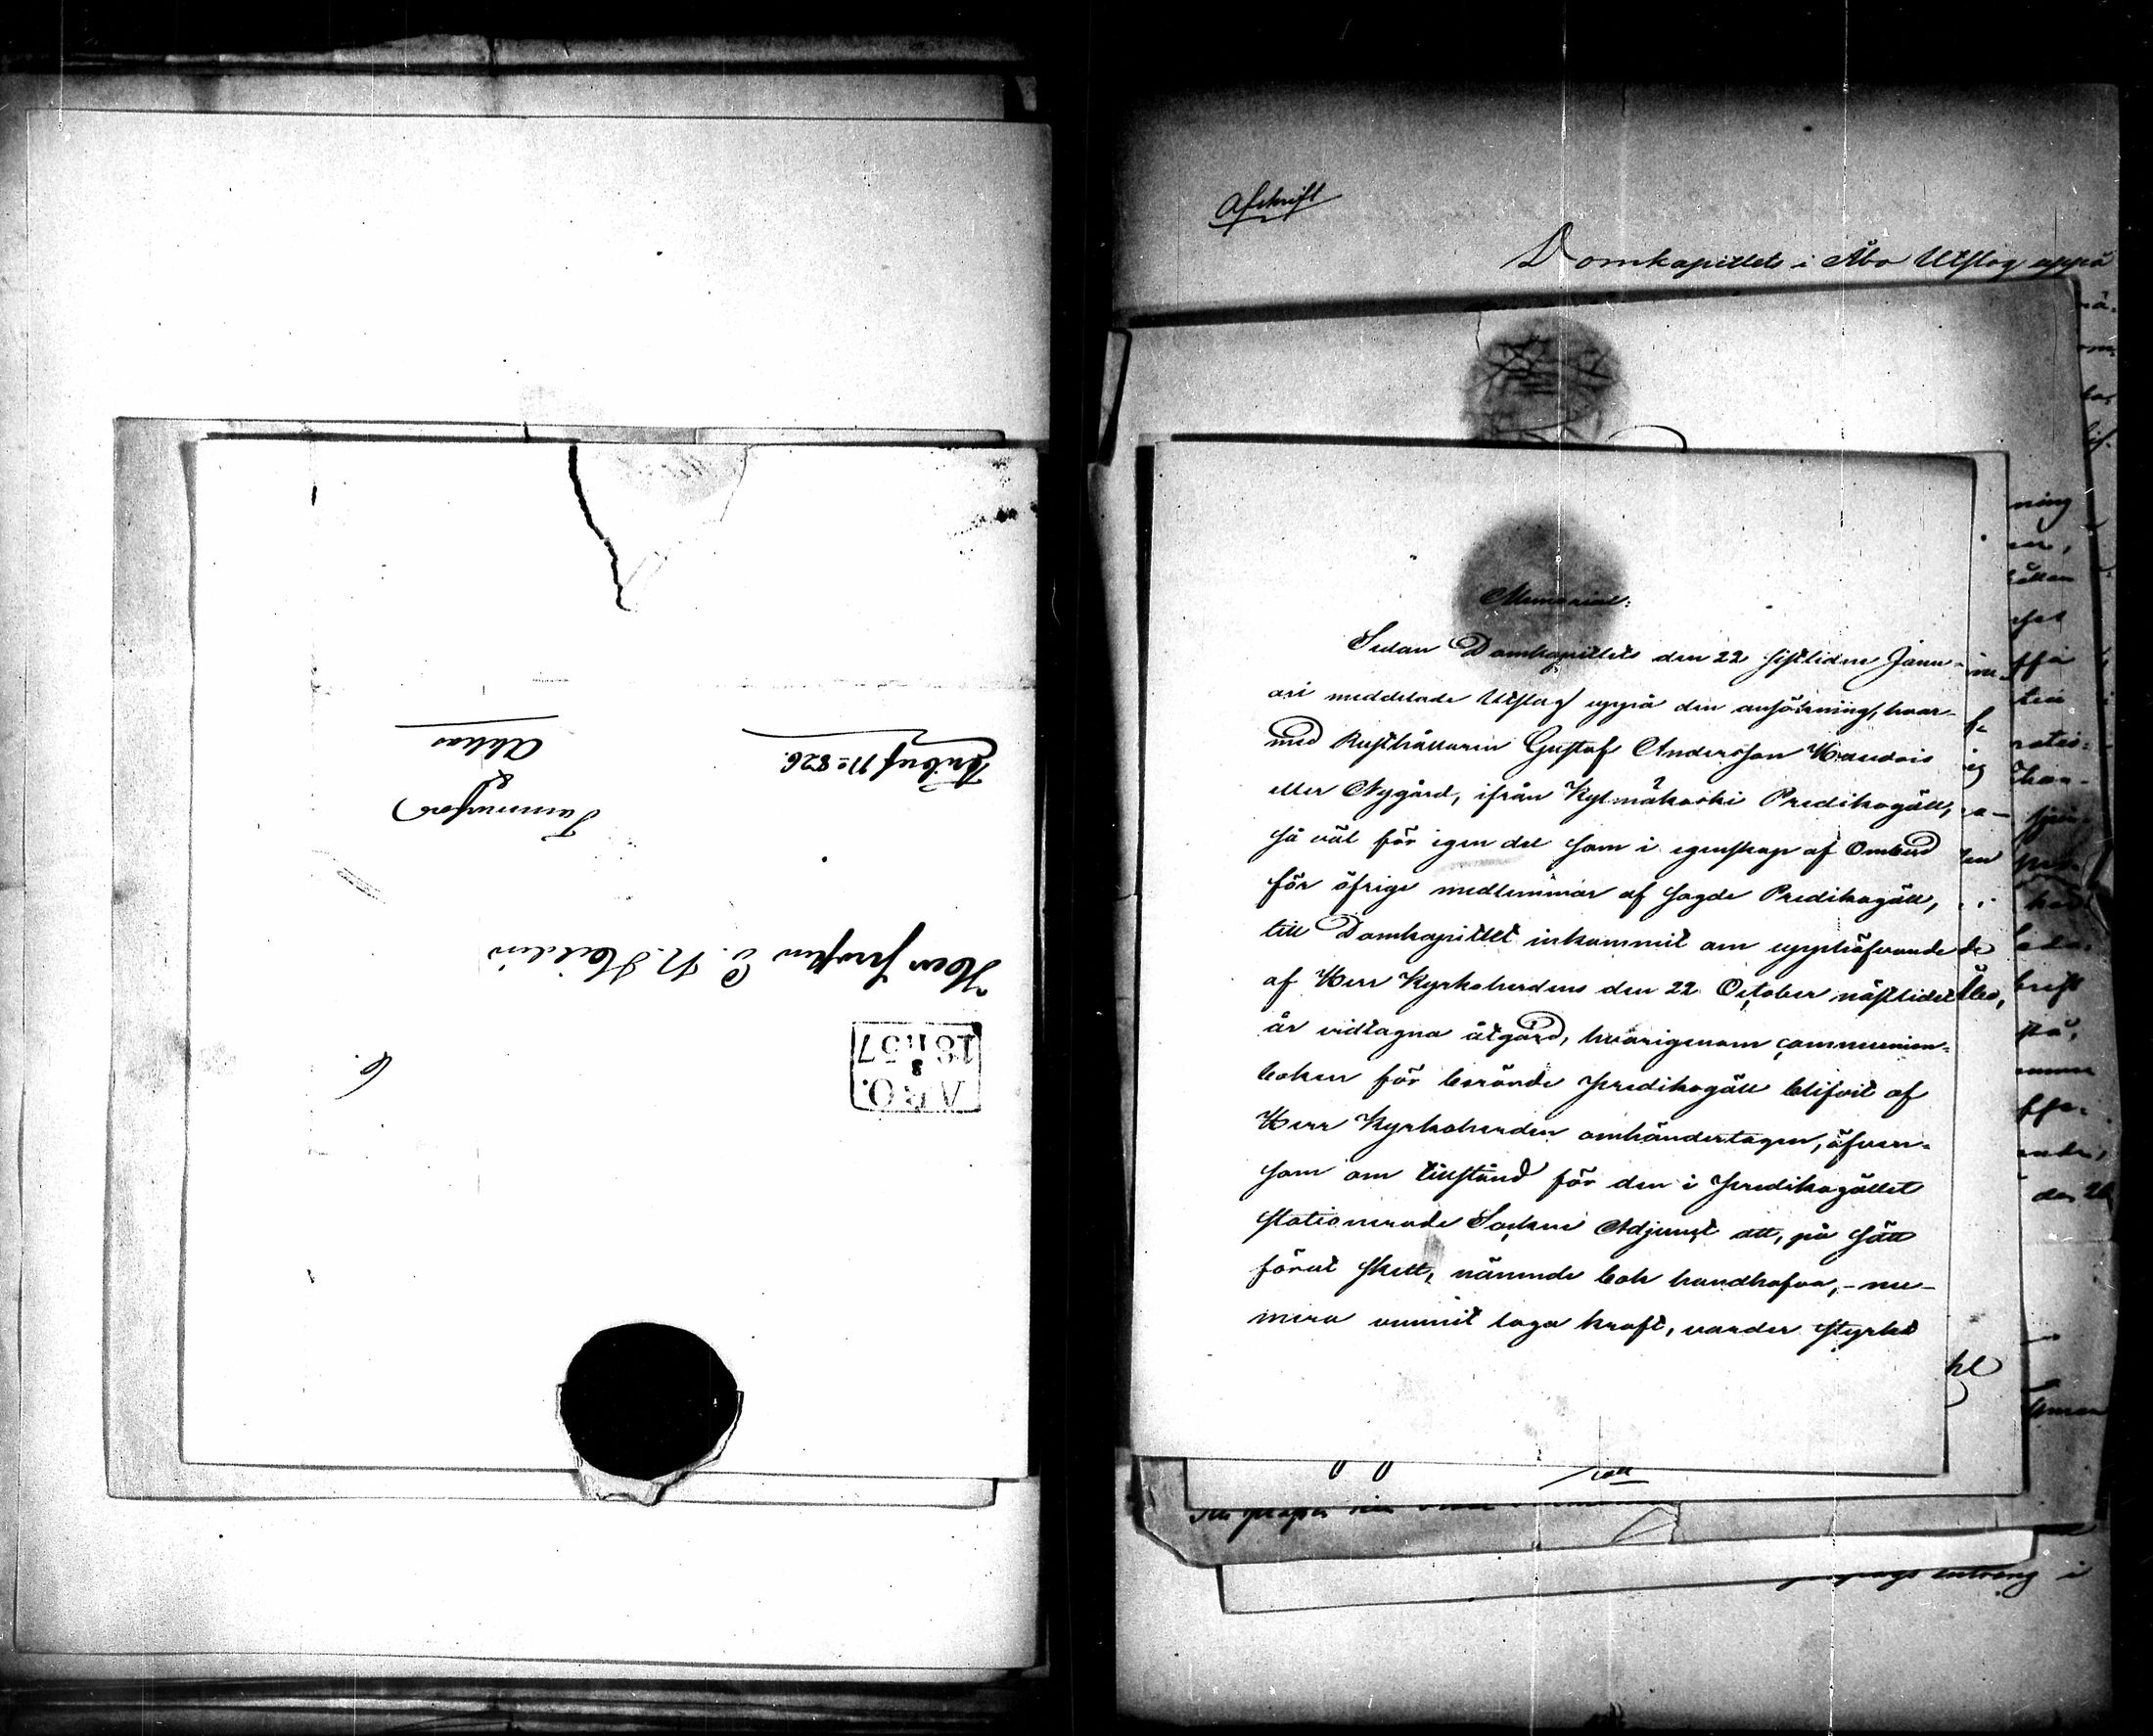 ABO.
3
18 11 57
Herr Prosten C. N. Heilin
6.
Tammerfors
&
Akkas
Tjenstebref No 826.
Afskrift
Domkapitlets i Åbo Utslag uppå
Memorial:
Sedan Domkapitlets den 22 sistlidne Janu-
ari meddelade Utslag uppå den ansökning, hvar-
med Rusthållaren Gustaf Andersson Handois
eller Nygård, ifrån Kylmäkoski Predikogäll,
så väl för egen del som i egenskap af Ombud
för öfrige medlemmar af sagde Predikogäll,
till Domkapitlet inkommit om upphäfvande
af Herr Kyrkoherdens den 22 October nästlidet
år vidtagna åtgärd, hvarigenom communion-
boken för berörde predikogäll blifvit af
Herr Kyrkoherden omhändertagen, äfven-
som om tillstånd för den i predikogället
stationerade Sockne Adjunct att, på sätt
förut skett, nämnde bok handhafva, - nu-
mera vunnit laga kraft, varder styrkt